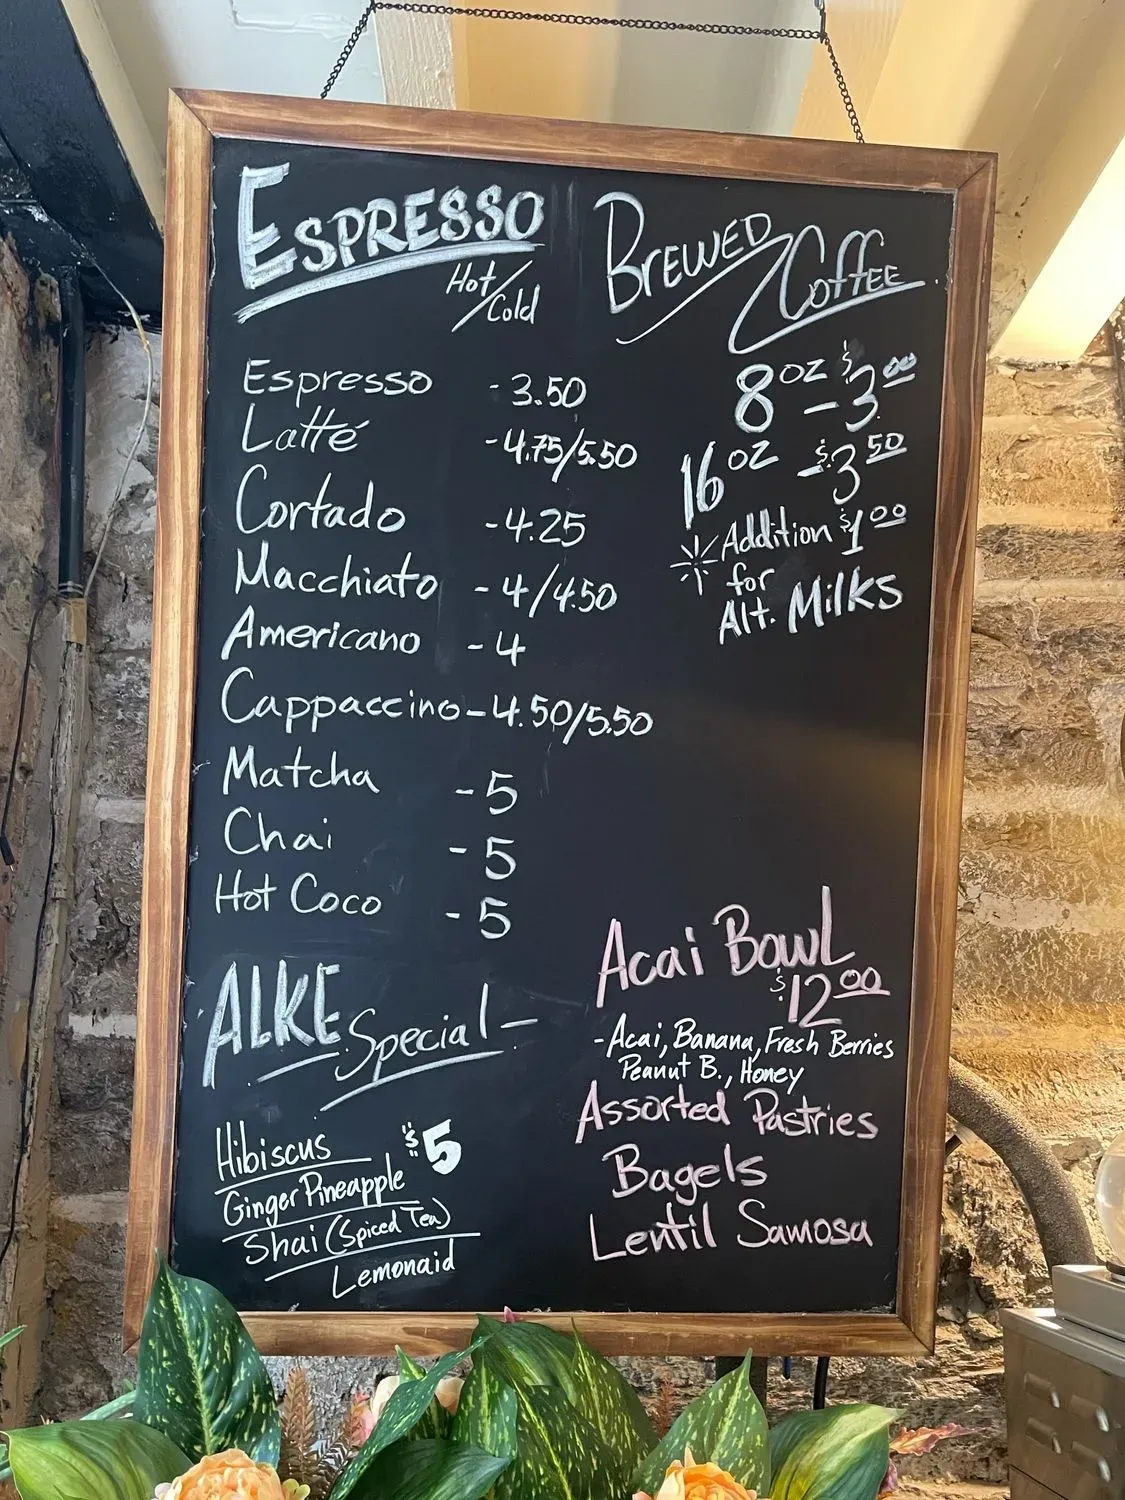 ESPRESSO
Hot/Cold
Espresso - 3.50
Latté - 4.75/5.50
Cortado - 4.25
Macchiato - 4/4.50
Americano - 4
Cappaccino - 4.50/5.50
Matcha - 5
Chai - 5
Hot Coco - 5
ALKE Special -
Hibiscus $5
Ginger Pineapple
Shai (Spiced Tea)
Lemonaid
BREWED COFFEE
8 oz - $3.00
16 oz - $3.50
Addition $1.00
for
Alt. Milks
Acai Bowl
$12.00
- Acai, Banana, Fresh Berries
Peanut B., Honey
Assorted Pastries
Bagels
Lentil Samosa